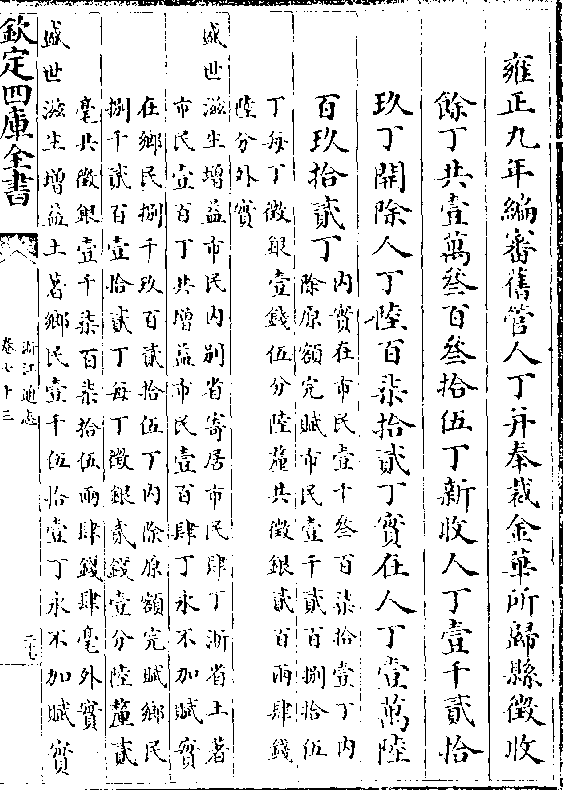 雍正九年編審舊管人丁并奉裁金華所歸縣徵收
餘丁共壹萬叁百叁拾伍丁新收人丁壹千貳拾
玖丁開除人丁陸百柒拾貳丁實在人丁壹萬陸
百玖拾貳丁
内實在市民壹千叁百柒拾壹丁内
除原額完賦市民壹千貳百捌拾伍
丁每丁徵銀壹錢伍分陸釐共徵銀貳百兩肆錢
陸分外實
盛世滋生增益市民内别省寄居市民肆丁浙省土著
市民壹百丁共增益市民壹百肆丁永不加賦實
在鄉民捌千玖百貳拾伍丁内除原額完賦鄉民
捌千貳百壹拾貳丁每丁徵銀貳錢壹分陸釐貳
毫共徵銀壹千柒百柒拾伍兩肆錢肆毫外實
盛世滋生增益土著鄉民壹千伍拾壹丁永不加賦實
欽定四庫全書
浙江通志
卷七十三